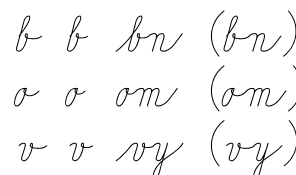 b b bn (bn)
o o om (om)
v v vy (vy)